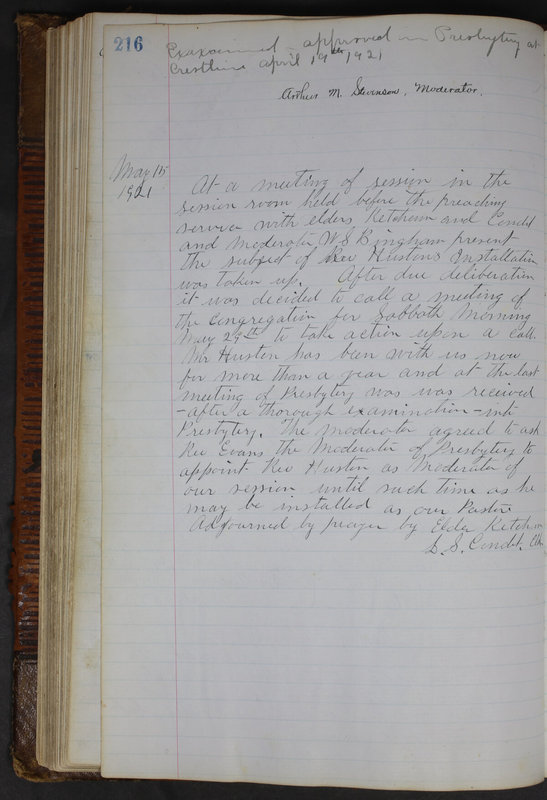 216
Exaxamined - approved in Presbytery at
Crestline april 19th 1921
Arthur M. Stevenson, Moderator.
May 15
1921
At a meeting of session in the
session room held before the preaching
service with elders Ketchum and Condit
and Moderator W S Bingham present
the subject of Rev Hustons Installation
was taken up. After due deliberation
it was decided to call a meeting of
the congregation for Sabbath Morning
May 29th to take action upon a call.
Mr Huston has been with us now
for more than a year and at the last
meeting of Presbytery was was received
-after a thorough examination- into
Presbytery. The moderator agreed to ask
Rev Evans the Moderator of Presbytery to
appoint Rev Huston as Moderator of
our session until such time as he
may be installed as our Pastor
Adjourned by prayer by Elder Ketchum
S. S. Condit, Clk